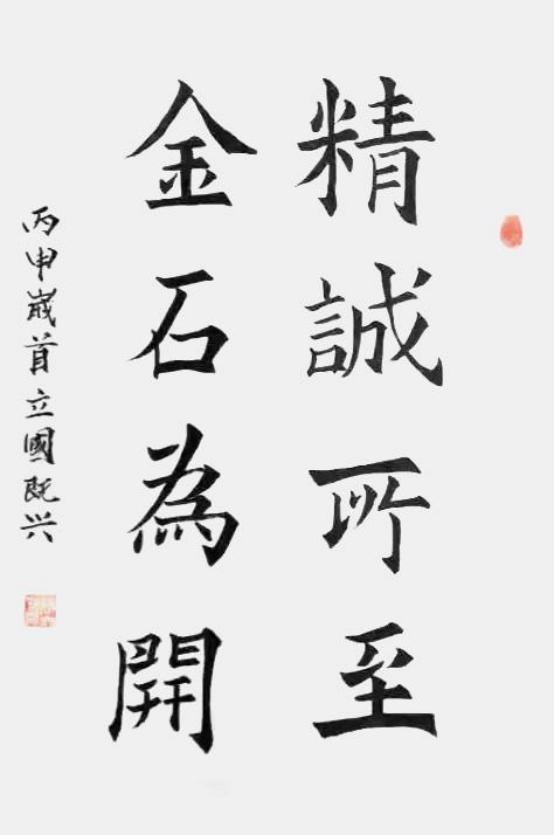 精誠所至
金石為開
丙申嵗首立國既兴